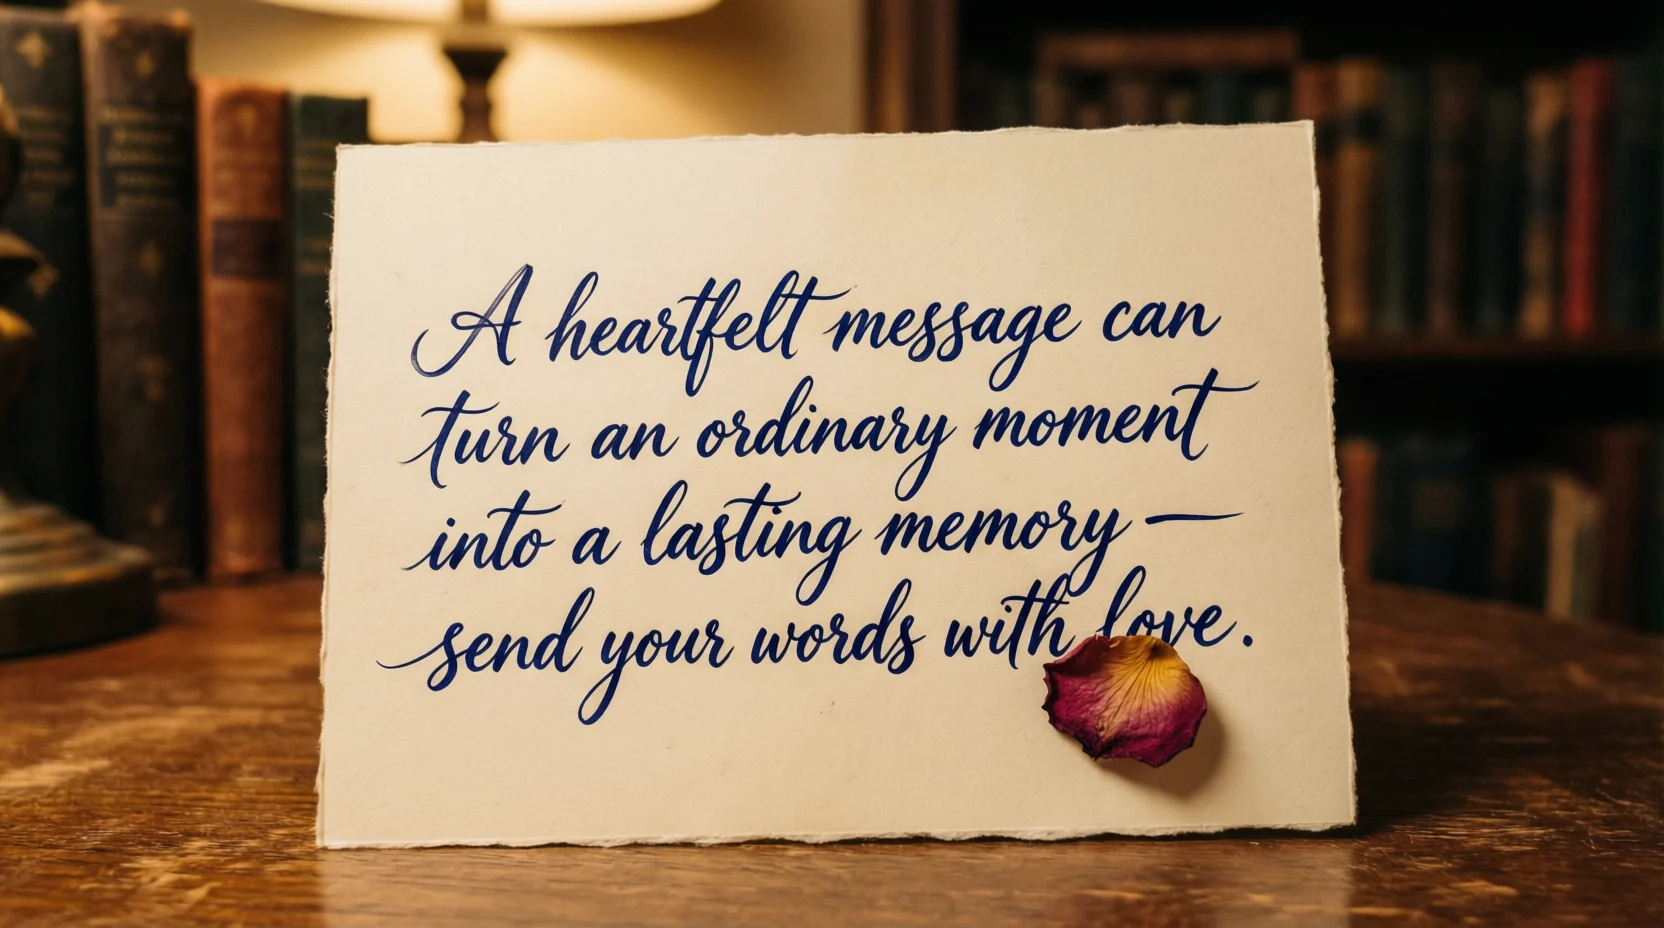 A heartfelt message can
turn an ordinary moment
into a lasting memory —
send your words with love.